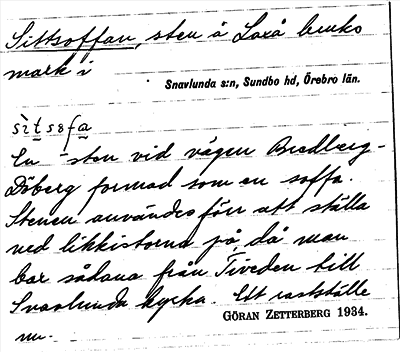 Sittsoffan, sten å Laxå bruks
mark i
Snavlunda s:n, Sundbo hd, Örebro län.
sìtsofa
En sten vid vägen Bredberg-
Döberg formad som en soffa.
Stenen användes förr att ställa
ned likkistorna på, då man
bar sådana från Tiveden till
Snavlunda kyrka. Ett rastställe
nu.
GÖRAN ZETTERBERG 1934.